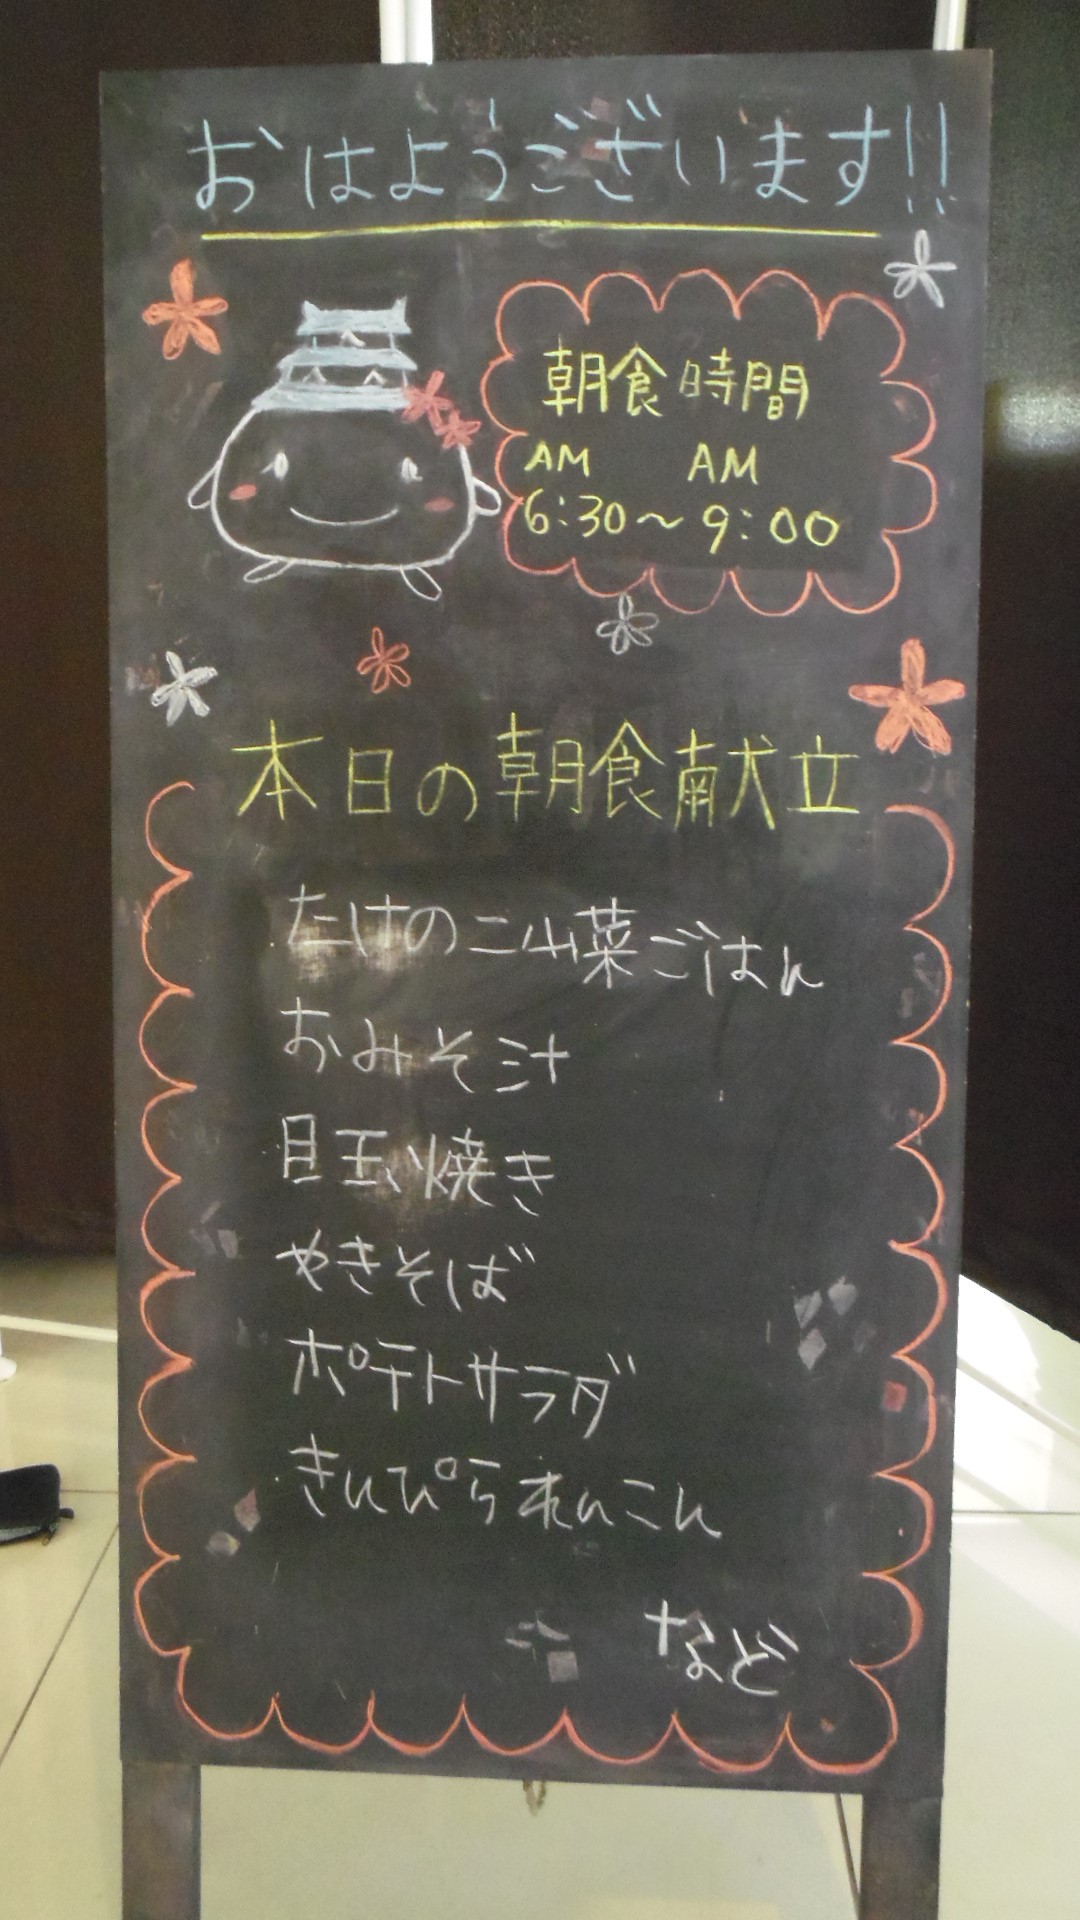 おはようございます!!
朝食時間
AM AM
6:30～9:00
本日の朝食献立
たけのこ山菜ごはん
おみそ汁
目玉焼き
やきそば
ポテトサラダ
きんぴられんこん
など